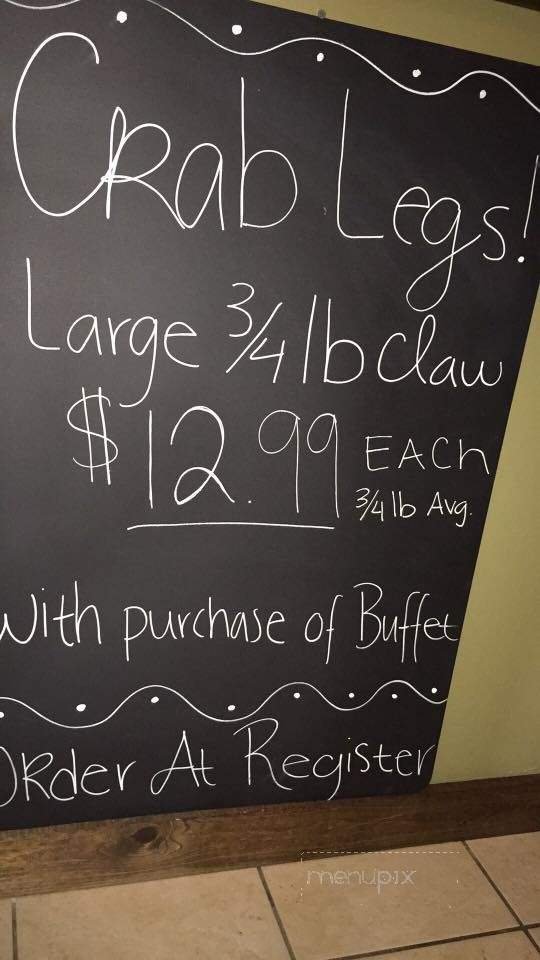 Crab Legs!
Large 3/4 lb Claw
$12.99 EACh
3/4 lb Avg.
With purchase of Buffet
Order At Register
menupix